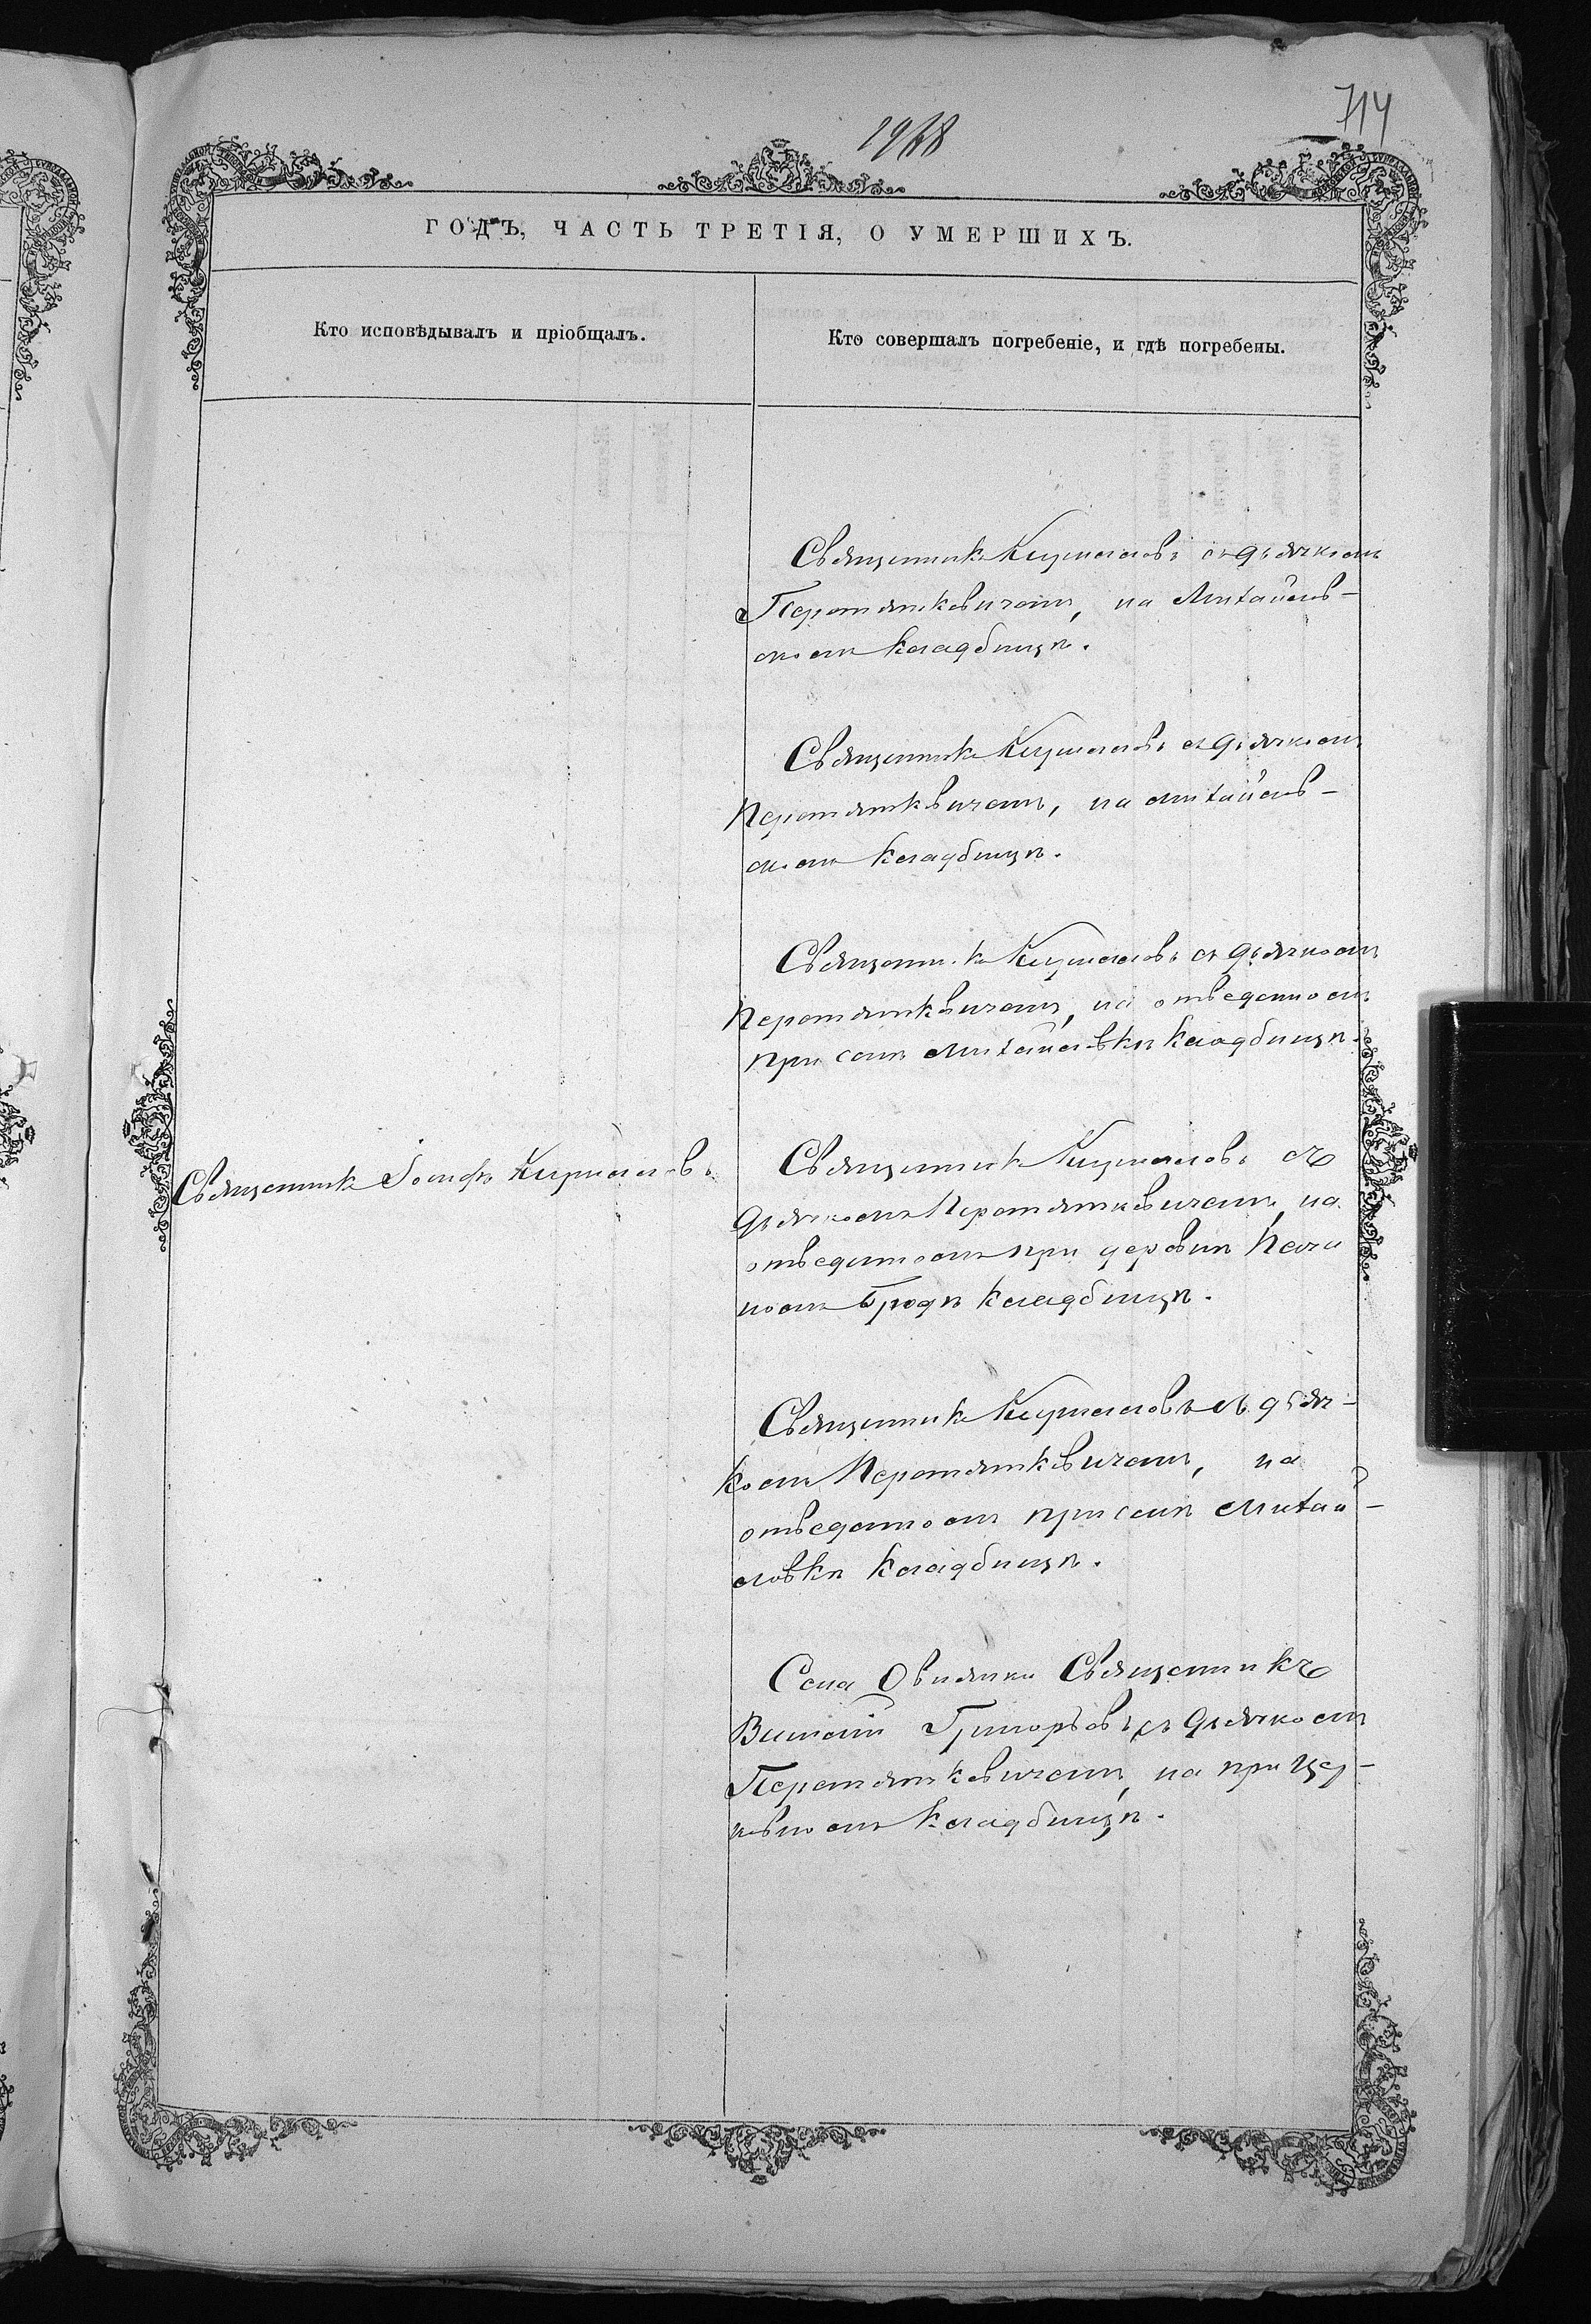 714
ГОДЪ, ЧАСТЬ ТРЕТІЯ, О УМЕРШИХЪ.
Кто исповѣдывалъ и пріобщалъ.
Кто совершалъ погребеніе, и гдѣ погребены.
Священникъ съ дьячкомъ
Перетятковичемъ, на Михайлов-
скомъ кладбищѣ.
Священникъ съ дьячкомъ
Перетятковичемъ, на Михайлов-
скомъ кладбищѣ.
Священникъ съ дьячкомъ
Перетятковичемъ, на отведенномъ
при селѣ Михайловкѣ кладбищѣ.
Священникъ Іосифъ
Священникъ съ
дьячкомъ Перетятковичемъ, на
отведенномъ при деревнѣ
Бродѣ кладбищѣ.
Священникъ съ дьяч-
комъ Перетятковичемъ, на
отведенномъ при селѣ Михай-
ловкѣ кладбищѣ.
Села Священникъ
Григоровъ съ дьячкомъ
Перетятковичемъ, на при цер-
ковномъ кладбищѣ.